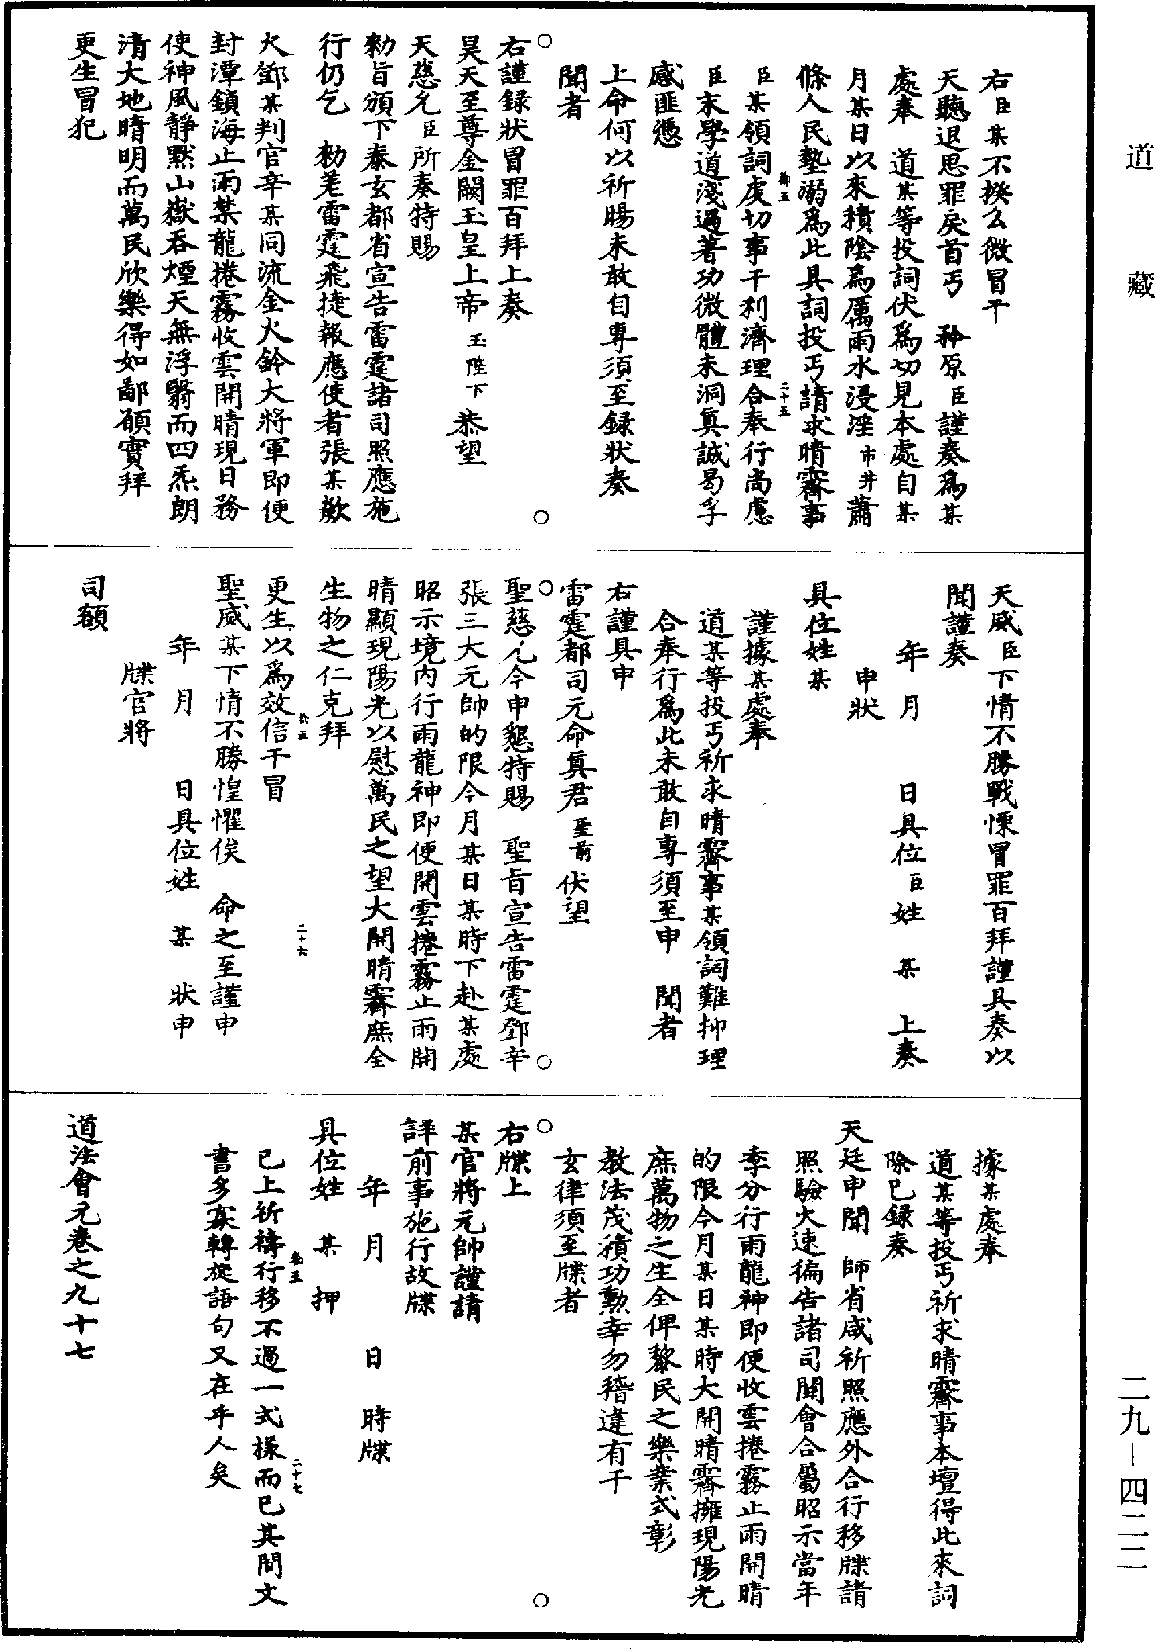 道藏
右臣某不揆么微冒干
天聽退思罪戾首丐　矜原臣謹奏爲某
處奉　道某等投詞伏爲切見本處自某
月某日以來積陰爲厲雨水浸淫市井蕭
條人民墊溺爲此具詞投丐請求晴霽事
臣某領詞虔切事干利濟理合奉行尚慮
臣末學道淺過著功微體未洞真誠曷孚
感匪憑
上命何以祈暘未敢自專須至録狀奏
聞者
右謹録狀冒罪百拜上奏
昊天至尊金闕玉皇上帝玉陛下恭望
天慈允臣所奏特賜
勑旨頒下泰玄都省宣告雷霆諸司照應施
行仍乞　勑差雷霆飛捷報應使者張某歘
火鄧某判官辛某同流金火鈴大將軍即便
封潭鎖海止雨禁龍捲霧收雲開晴現日務
使神風靜默山嶽吞煙天無浮翳而四炁朗
清大地晴明而萬民欣樂得如鄙願實拜
更生冒犯
天威臣下情不勝戰慄冒罪百拜謹具奏以
聞謹奏
年　月　日具位臣姓　某　上奏
申狀
具位姓某
謹據某處奉
道某等投丐祈求晴霽事某領詞難抑理
合奉行爲此未敢自專須至申　聞者
右謹具申
雷霆都司元命真君聖前伏望
聖慈允今申懇特賜　聖旨宣告雷霆鄧辛
張三大元帥的限今月某日某時下赴某處
昭示境内行雨龍神即便開雲捲霧止雨開
晴顯現陽光以慰萬民之望大開晴霽庶全
生物之仁克拜
更生以爲效信干冒
聖威某下情不勝惶懼俟　命之至謹申
年　月　日具位姓　某　狀申
牒官將
司額
據某處奉
道某等投丐祈求晴霽事本壇得此來詞
除已録奏
天廷申聞　師省咸祈照應外合行移牒請
照驗火速徧告諸司開會合屬昭示當年
季分行雨龍神即便收雲捲霧止雨開晴
的限今月某日某時大開晴霽擁現陽光
庶萬物之生全俾黎民之樂業式彰
教法茂積功勲幸勿稽違有干
玄律須至牒者
右牒上
某官將元帥謹請
詳前事施行故牒
年　月　日　時牒
具位姓　某　押
已上祈禱行移不過一式樣而已其間文
書多寡轉旋語句又在乎人矣
道法會元卷之九十七
二九－四二二